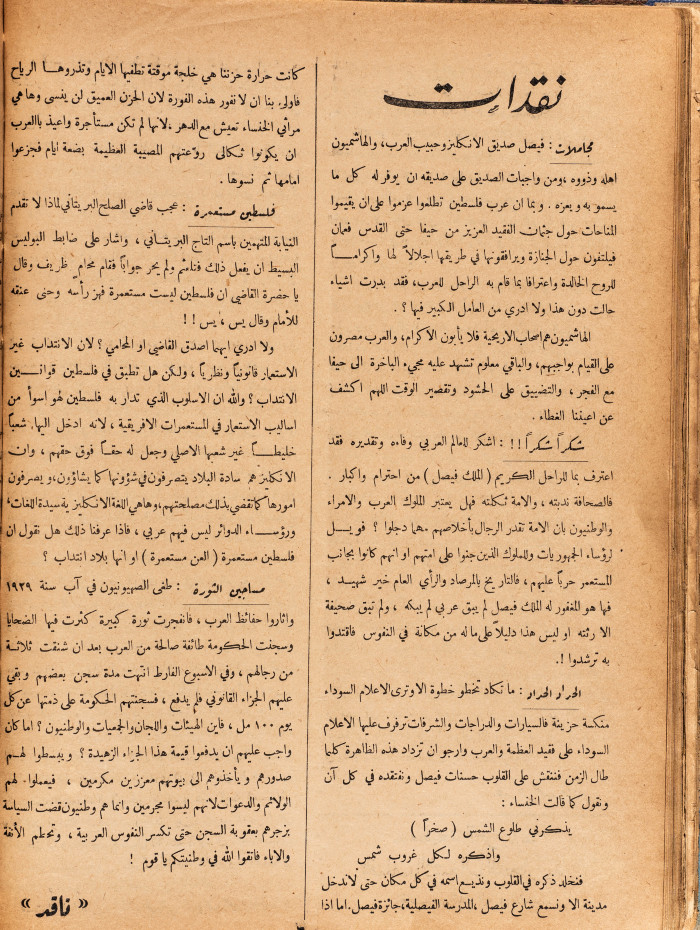 نقدات
مجاملات : فيصل صديق الانكليز وحبيب العرب، والهاشميون
اهله وذووه ، ومن واجبات الصديق على صديقه ان يوفر له كل ما
يسمو به ويعزه . وبما ان عرب فلسطين تطلعوا عزموا على ان يقيموا
المناحات حول جثمان الفقيد العزيز من حيفا حتى القدس فعمان
فيلتفون حول الجنازة ويرافقونها في طريقها اجلالاً لها واكرامــاً
للروح الخالدة واعترافا بما قام به الراحل للعرب، فقد بدرت اشياء
حالت دون هذا ولا ادري من العامل الكبير فيها ؟ .
الهاشميون هم اصحاب الاريحية فلا يأبون الاكرام، والعرب مصرون
على القيام بواجبهم، والباقي معلوم تشهد عليه مجيء الباخرة الى حيفا
مع الفجر ، والتضييق على الحشود وتقصير الوقت اللهم اكشف
عن اعيننا الغطاء .
شكراً شكراً !! : اشكر للعالم العربي وفاءه وتقديره فقد
اعترف بما للراحل الكريم ( الملك فيصل ) من احترام واكبار .
فالصحافة ندبته ، والامة ثكلته فهل يعتبر الملوك العرب والامراء
والوطنيون بان الامة تقدر الرجال بأخلاصهم مهما دجلوا ؟ فويــل
لرؤساء الجمهوريات وللملوك الذين جنوا على امتهم او انهم كانوا بجانب
المستعمر حرباً عليهم ، فالتاريخ بالمرصاد والرأي العام خير شهيد ،
فها هو المغفور له الملك فيصل لم يبق عربي لم يبكه ، ولم تبق صحيفة
الا رثته او ليس هذا دليلاً على ما له من مكانة في النفوس فاقتدوا
به ترشدوا !.
الحداد الحداد : ما نكاد نخطو خطوة الا وترى الاعلام السوداء
منكسة حزينة فالسيارات والدراجات والشرفات ترفرف عليها الاعلام
السوداء على فقيد العظمة والعرب وارجو ان تزداد هذه الظاهرة كلما
طال الزمن فننقش على القلوب حسنات فيصل ونفتقده في كل آن
ونقول كما قالت الخنساء :
يذكرني طلوع الشمس ( صخراً )
واذكره لكل غروب شمس
فنخلد ذكره في القلوب ونذيع اسمه في كل مكان حتى لا ندخل
مدينة الا ونسمع شارع فيصل ،المدرسة الفيصلية، جائزة فيصل. اما اذا
كانت حرارة حزننا هي خلجة موقتة تطفيها الايام وتذروهــا الرياح
فاولى بنا ان لا نفور هذه الفورة لان الحزن العميق لن ينسى وها هي
مراثي الخنساء تعيش مع الدهر ،لانها لم تكن مستأجرة واعيذ بالعرب
ان يكونوا ثكالى روّعتهم المصيبة العظيمة بضعة ايام فجزعوا
امامها ثم نسوها .
فلسطين مستعمرة : عجب قاضي الصلح البريتاني لماذا لا تقدم
النيابة للمتهمين باسم التاج البريتــاني ، واشار على ضابط البوليس
البسيط ان يفعل ذلك فتلعثم ولم يحر جواباً فقام محام ظريف وقال
يا حضرة القاضي ان فلسطين ليست مستعمرة فهز رأسه وحنى عنقه
للأمام وقال يس ، يس !!
ولا ادري ايهما اصدق القاضي او المحامي ؟ لان الانتداب غير
الاستعمار قانونياً ونظرياً ، ولكن هل تطبق في فلسطين قوانــين
الانتداب ؟ والله ان الاسلوب الذي تدار به فلسطين لهو اسوأ من
اساليب الاستعمار في المستعمرات الافريقية ، لانه ادخل اليها شعباً
خليطــاً غير شعبها الاصلي وجعل له حقــاً فوق حقهم ، وان
الانكليز هم سادة البلاد يتصرفون في شؤونها كما يشاؤون،و يصرفون
امورها كما تقضي بذلك مصلحتهم،وها هي اللغة الانكليزية سيدة اللغات،
ورؤســاء الدوائر ليس فيهم عربي ، فاذا عرفنا ذلك هل نقول ان
فلسطين مستعمرة ( العن مستعمرة ) او انها بلاد انتداب ؟
مساجين الثورة : طغى الصهيونيون في آب سنة ١٩٢٩
واثاروا حفائظ العرب ، فانفجرت ثورة كبيرة كثرت فيها الضحايا
وسجنت الحكومة طائفة صالحة من العرب بعد ان شنقت ثلاثــة
من رجالهم ، وفي الاسبوع الفارط انتهت مدة سجن بعضهم وبقي
عليهم الجزاء القانوني فلم يدفع ، فسجنتهم الحكومة على ذمتها عن كل
يوم ١٠٠ مل ، فاين الهيئات واللجان والجمعيات والوطنيون ؟ اما كان
واجب عليهم ان يدفعوا قيمة هذا الجزاء الزهيدة ؟ ويبسطوا لهــم
صدورهم و يأخذوهم الى بيوتهم معززين مكرمين ، فيعملوا لهم
الولائم والدعوات لانهم ليسوا مجرمين وانما هم وطنيون قضت السياسة
بزجرهم بعقوبة السجن حتى تكسر النفوس العربية ، وتحطم الأنفة
والاباء فاتقوا الله في وطنيتكم يا قوم !
« ناقد »